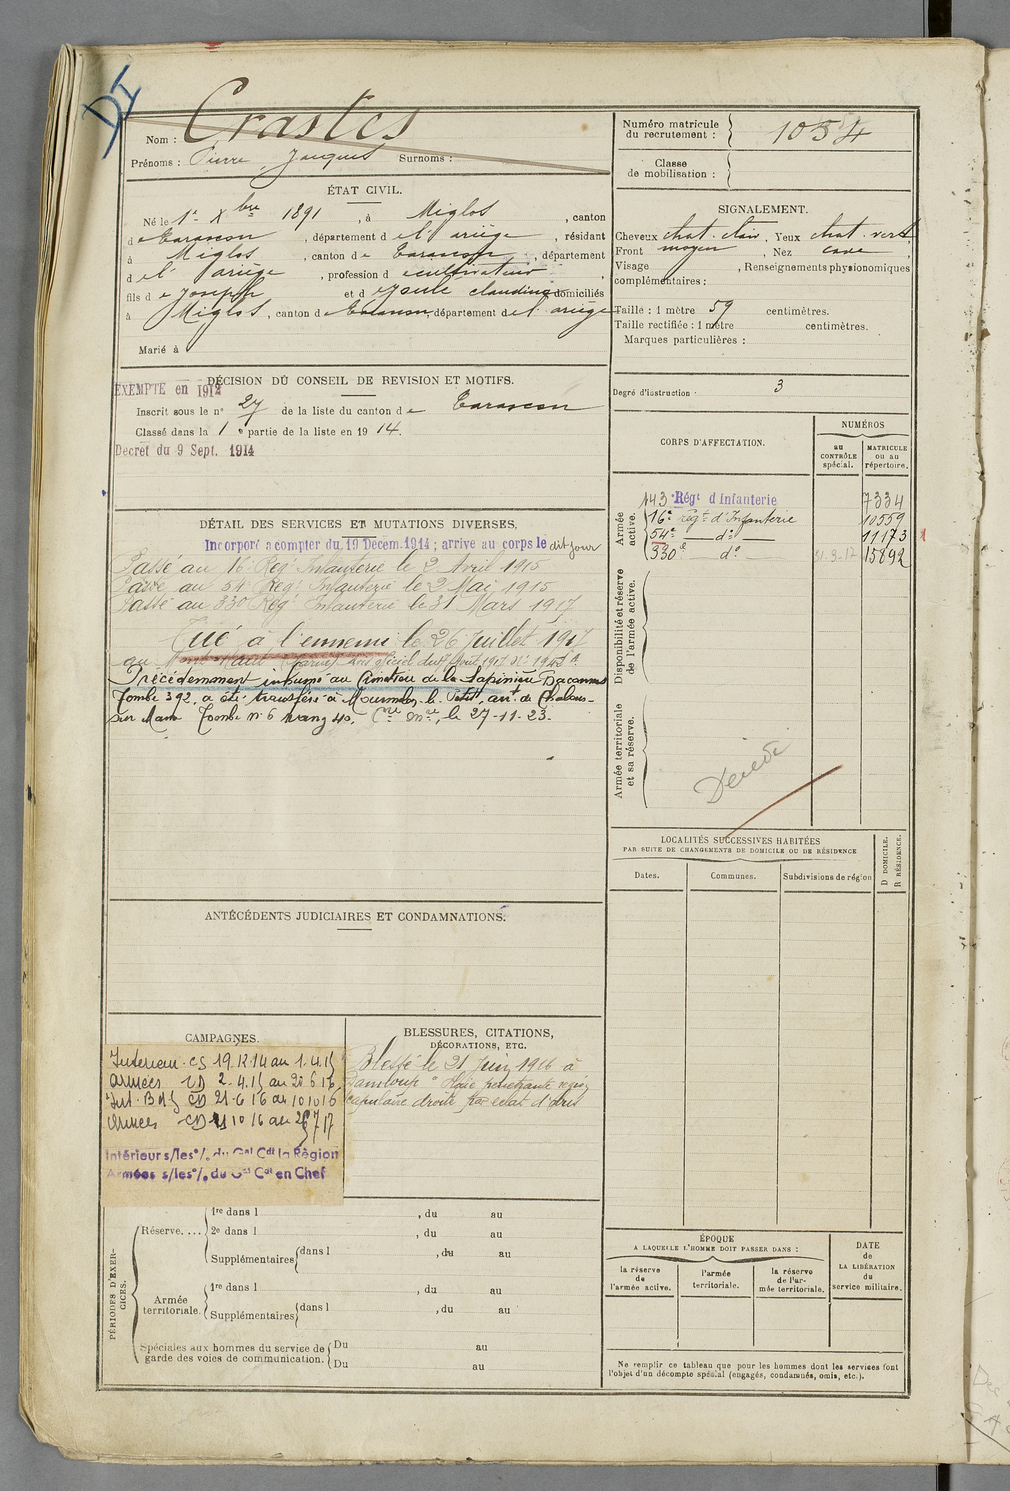 DI
Nom : Crastes
Prénoms : Pierre Jacques Surnoms :
Numéro matricule du recrutement : 1054
Classe de mobilisation :
ÉTAT CIVIL.
Né le 1er Xbre 1891, à Miglos, canton
de Tarascon, département de l'Ariège, résidant
à Miglos, canton de Tarascon, département
de l'Ariège, profession de cultivateur
fils de Joseph et de Gaule claudine domiciliés
à Miglos, canton de Tarascon, département de l'Ariège
Marié à
SIGNALEMENT.
Cheveux chat. clair. Yeux chat. vert
Front moyen, Nez cave,
Visage , Renseignements physionomiques
complémentaires :
Taille : 1 mètre 59 centimètres.
Taille rectifiée : 1 mètre centimètres.
Marques particulières :
Degré d'instruction 3
DÉCISION DU CONSEIL DE REVISION ET MOTIFS.
EXEMPTE en 1912
Inscrit sous le n° 27 de la liste du canton de Tarascon
Classé dans la 1e partie de la liste en 1914.
Décret du 9 Sept. 1914
CORPS D'AFFECTATION.
NUMÉROS
au CONTRÔLE spécial.
MATRICULE ou au répertoire.
Armée active.
143e Régt d'Infanterie 7334
16e régt d'Infanterie 10559
54e do 11173
330e do 31-3-17 15892
Disponibilité et réserve de l'armée active.
Armée territoriale et sa réserve.
Décédé
DÉTAIL DES SERVICES ET MUTATIONS DIVERSES.
Incorporé a compter du 19 Décem. 1914 ; arrivé au corps le dit jour
Passé au 16e Regt Infanterie le 2 Avril 1915
Passé au 54e Regt Infanterie le 2 Mai 1915
Passé au 330 Regt Infanterie le 31 Mars 1917
Tué à l'ennemi le 26 Juillet 1917
au Mont Haut (Marne)
Précédemment inhumé au Cimetière de la Sapinière
Tombe 392, a été transféré à Mourmelon-le-Petit, arrt. de Chalons-
sur Marne Tombe n° 6 rang 40. le 27-11-23.
LOCALITÉS SUCCESSIVES HABITÉES
PAR SUITE DE CHANGEMENTS DE DOMICILE OU DE RÉSIDENCE
Dates. Communes. Subdivisions de région
D DOMICILE.
R RÉSIDENCE.
ANTÉCÉDENTS JUDICIAIRES ET CONDAMNATIONS.
CAMPAGNES.
Interieur. CS 19.12.14 au 1.4.15
Armées CD 2-4.15 au 20 6 16
Int. CD 21-6 16 au 10 10 16
Armées CD 11 10 16 au 26 7 17
Intérieur s/les o/. du Gal Cdt la Région
Armées s/les o/. du Gal Cdt en Chef
BLESSURES, CITATIONS,
DÉCORATIONS, ETC.
Blessé le 21 Juin 1916 à
Damloup "Plaie pénétrante région
scapulaire droite par éclat d'obus
PÉRIODES D'EXERCICES.
Réserve. ... 1re dans l , du au
2e dans l , du au
Supplémentaires dans l , du au
Armée territoriale. 1re dans l , du au
Supplémentaires dans l , du au
Spéciales aux hommes du service de garde des voies de communication. Du au
Du au
ÉPOQUE
A LAQUELLE L'HOMME DOIT PASSER DANS :
la réserve de l'armée active.
l'armée territoriale.
la réserve de l'armée territoriale.
DATE DE LA LIBÉRATION du service militaire.
Ne remplir ce tableau que pour les hommes dont les services font
l'objet d'un décompte spécial (engagés, condamnés, omis, etc.).